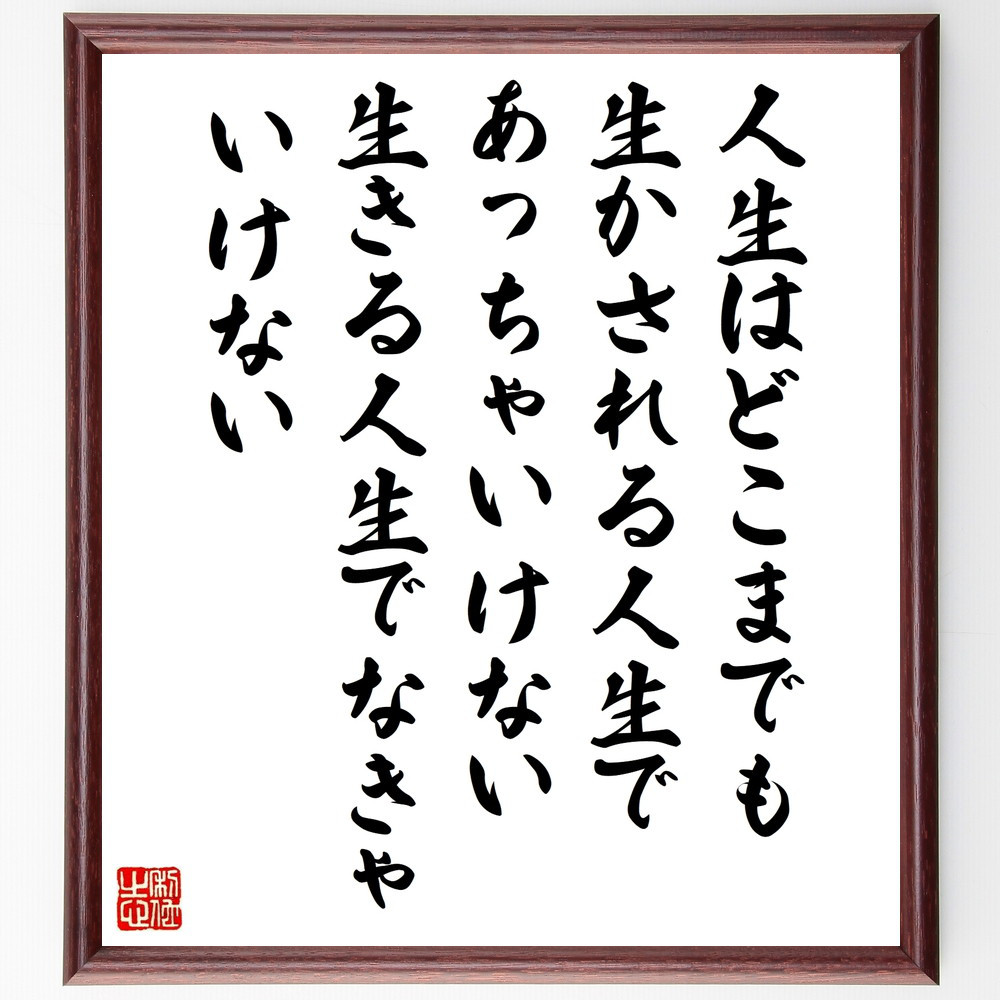 人生はどこまでも
生かされる人生で
あっちゃいけない
生きる人生でなきゃ
いけない